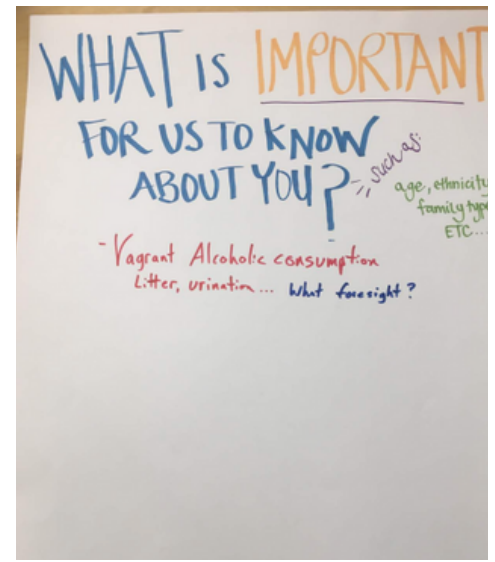 WHAT IS IMPORTANT
FOR US TO KNOW
ABOUT YOU?
such as:
age, ethnicity
family type
ETC...
- Vagrant Alcoholic consumption
Litter, urination... What foresight?